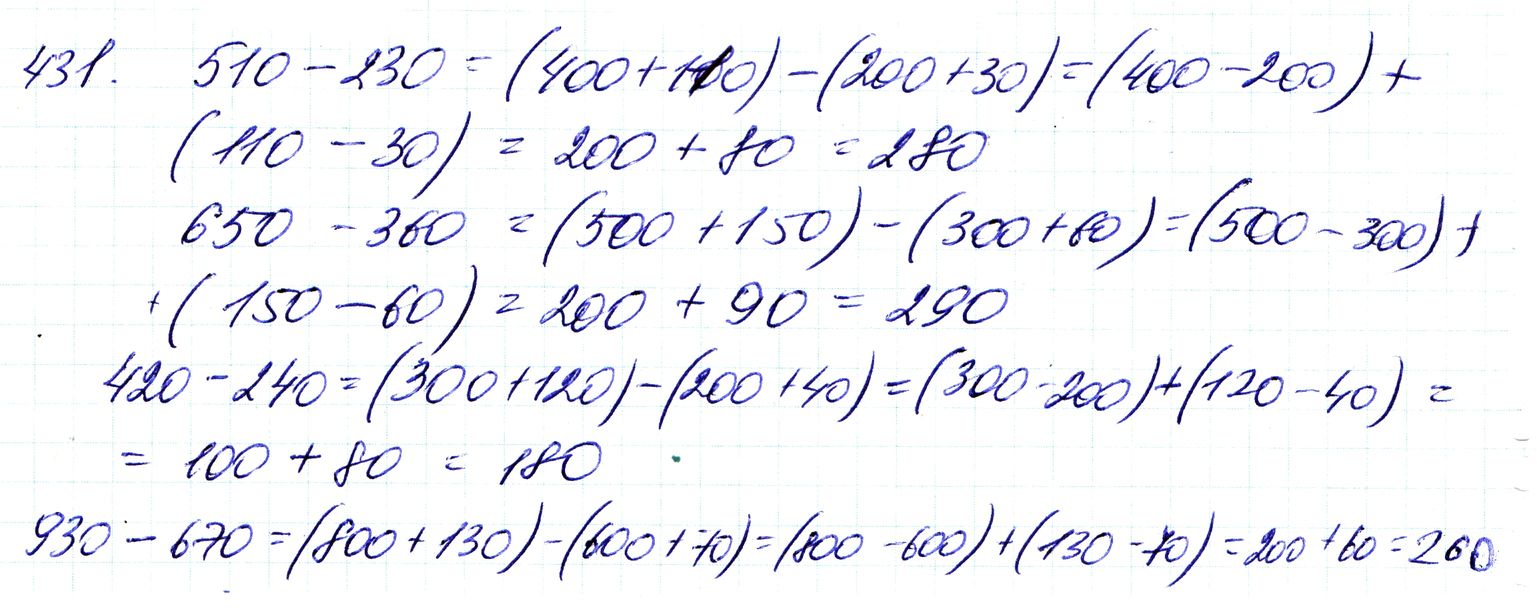 431. 510 - 230 = (400 + 110) - (200 + 30) = (400 - 200) +
(110 - 30) = 200 + 80 = 280
650 - 360 = (500 + 150) - (300 + 60) = (500 - 300) +
+ (150 - 60) = 200 + 90 = 290
420 - 240 = (300 + 120) - (200 + 40) = (300 - 200) + (120 - 40) =
= 100 + 80 = 180
930 - 670 = (800 + 130) - (600 + 70) = (800 - 600) + (130 - 70) = 200 + 60 = 260